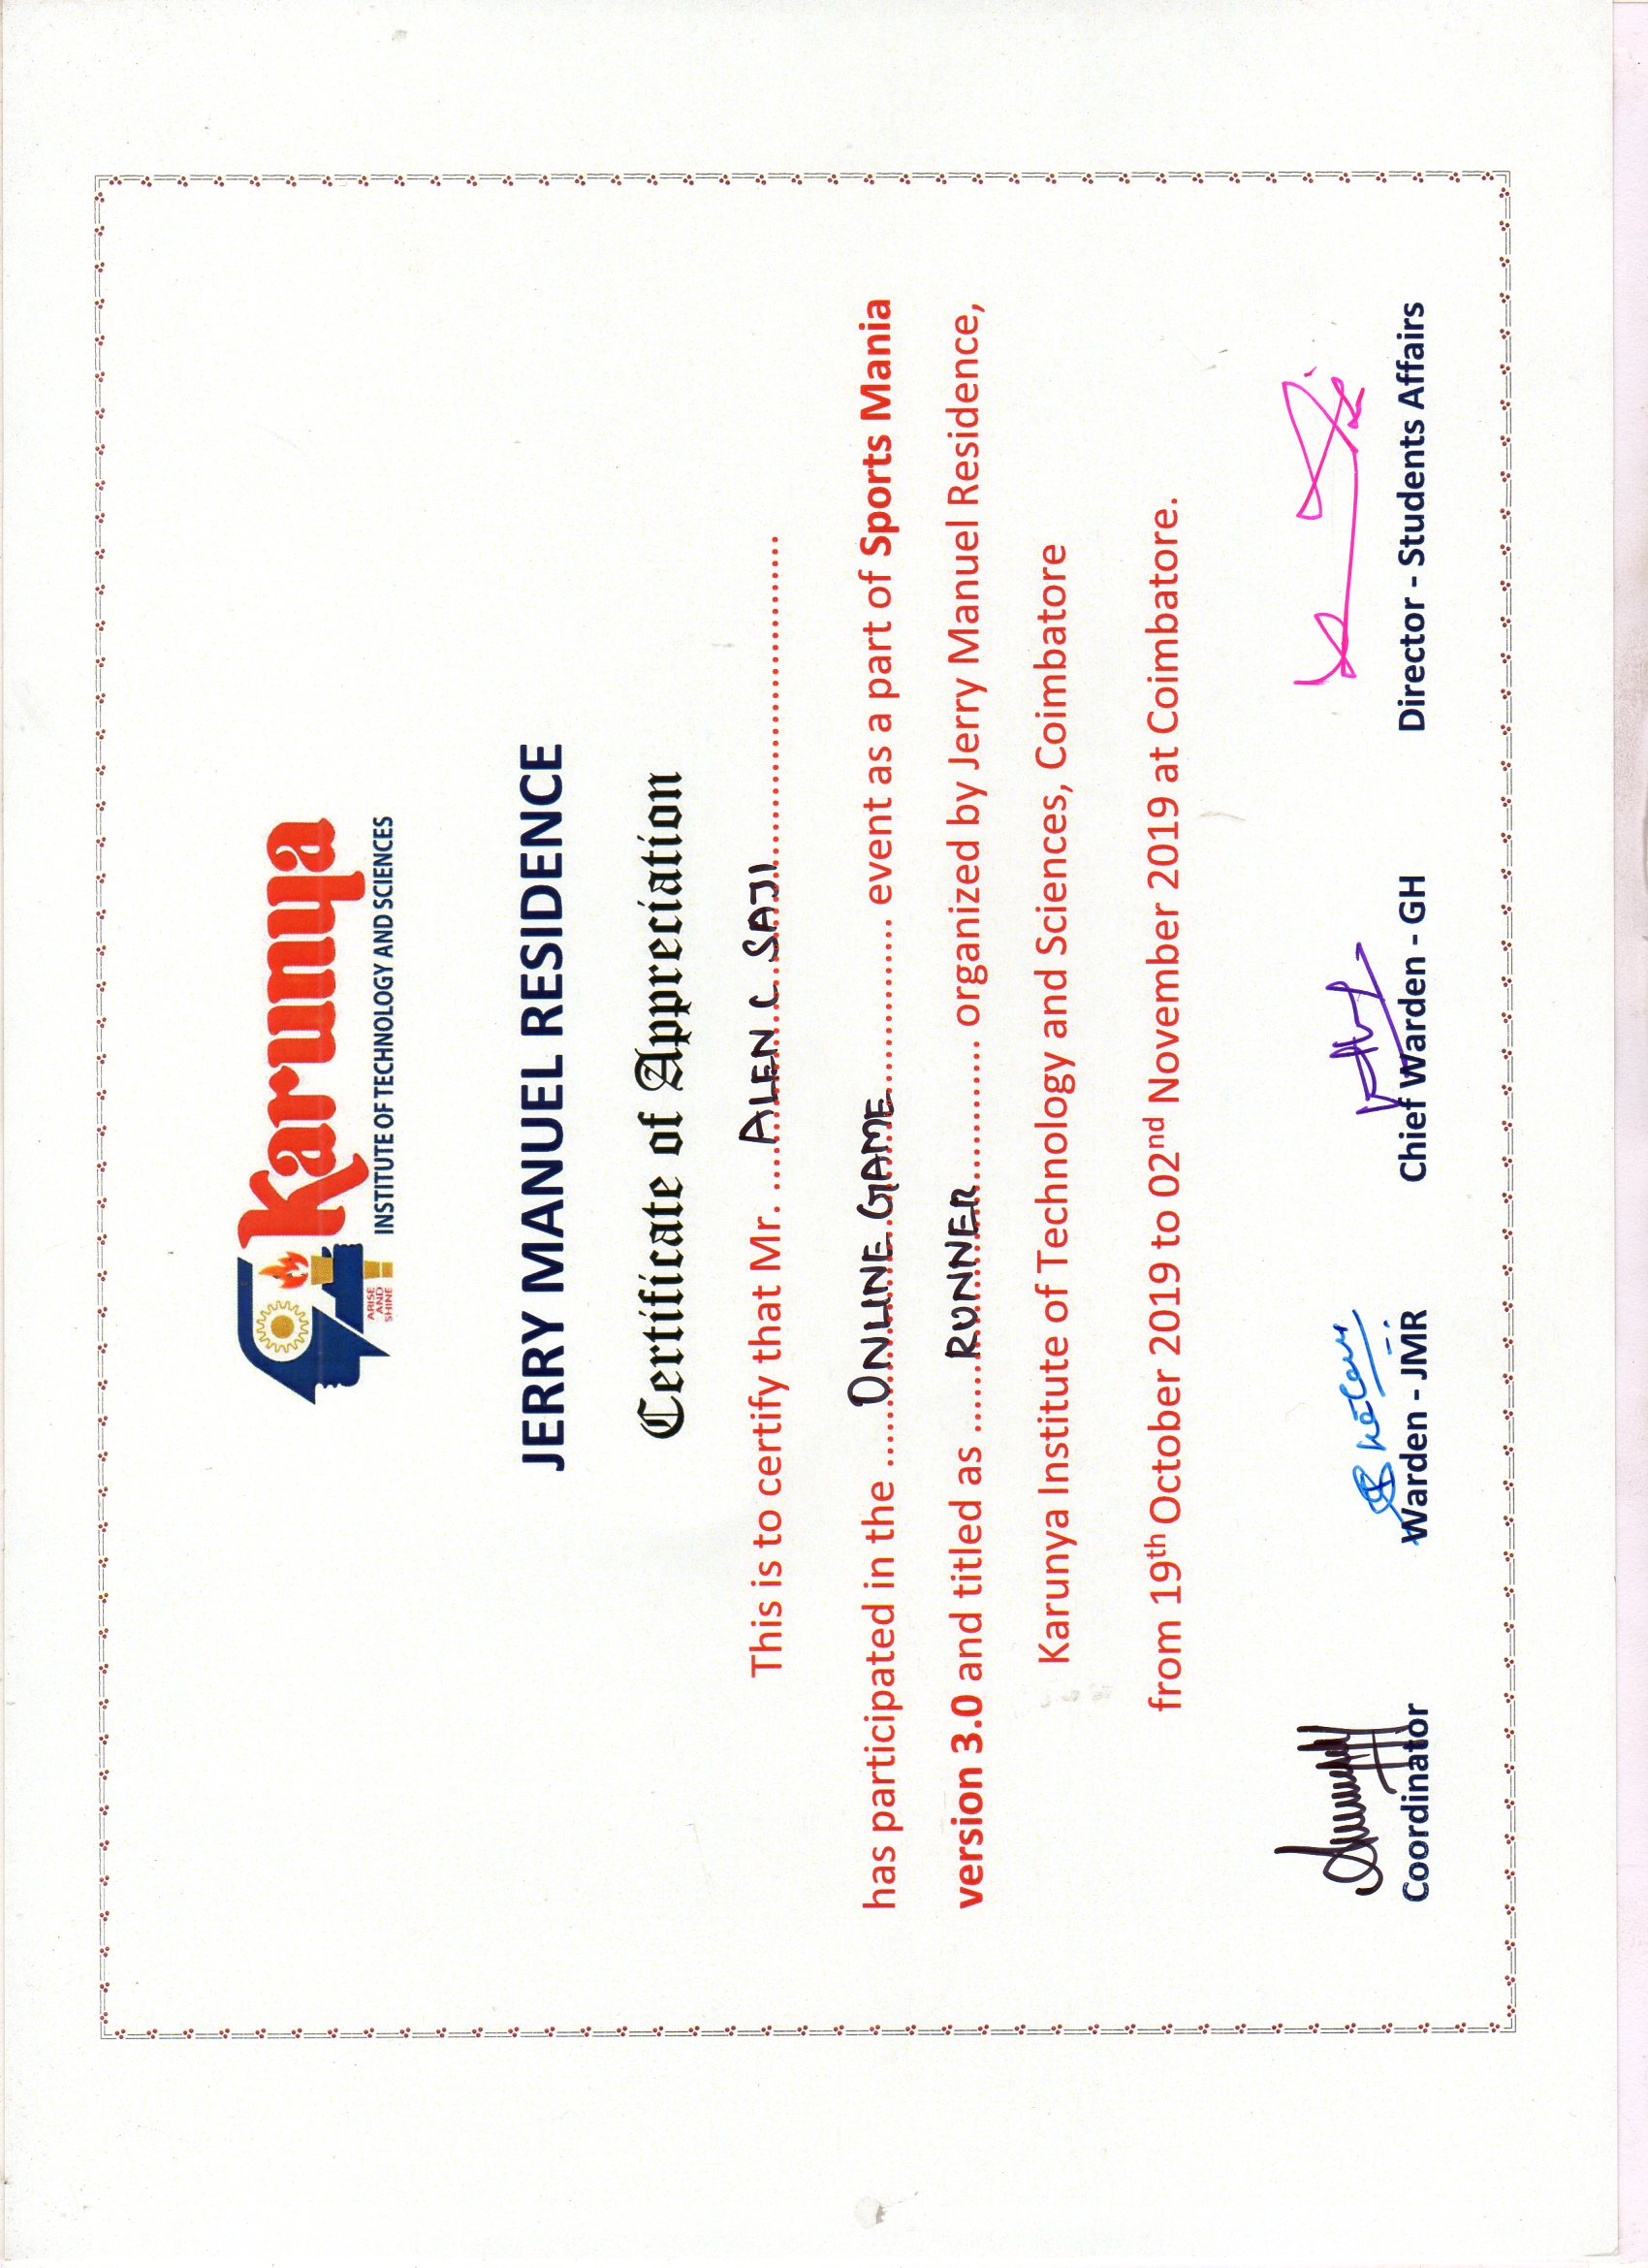 Karunya
ARISE
AND
SHINE
INSTITUTE OF TECHNOLOGY AND SCIENCES
JERRY MANUEL RESIDENCE
Certificate of Appreciation
This is to certify that Mr. ....ALEN C SAJI..................................
has participated in the ......ONLINE GAME................ event as a part of Sports Mania
version 3.0 and titled as ......RUNNER.............. organized by Jerry Manuel Residence,
Karunya Institute of Technology and Sciences, Coimbatore
from 19th October 2019 to 02nd November 2019 at Coimbatore.
Coordinator Warden - JMR Chief Warden - GH Director - Students Affairs